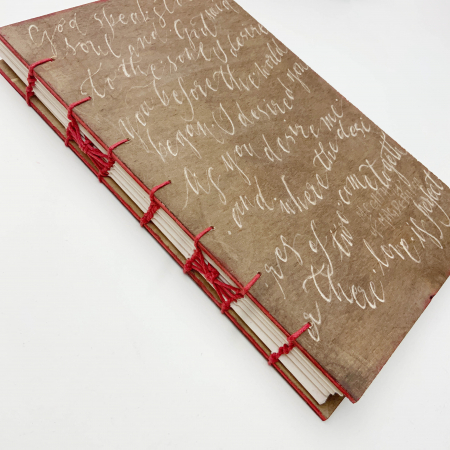 God speaks
soul and God said
to the soul I desired
you before the world
began I desired you
As you desire me
and where the desi
res of two come together
There love is